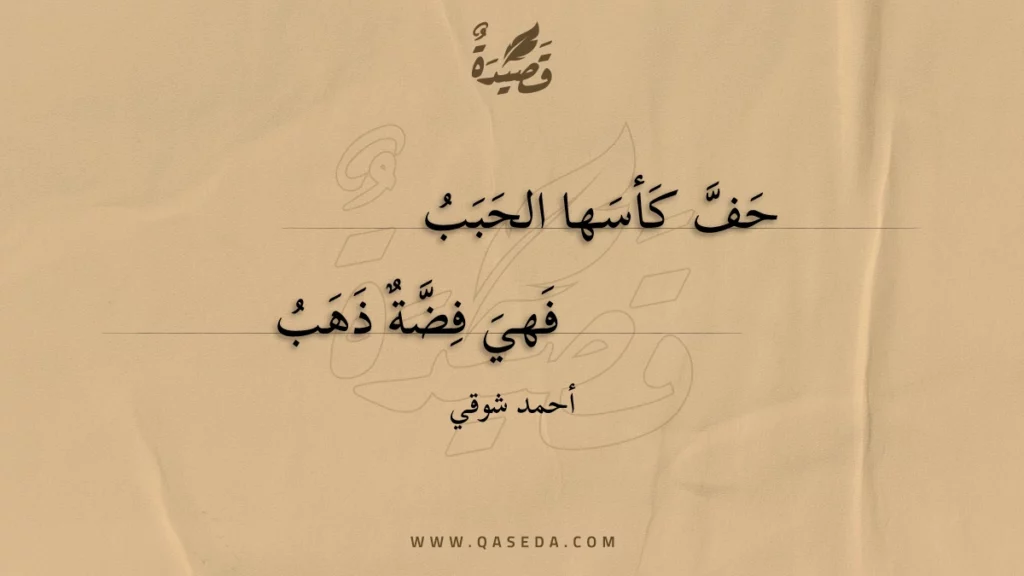 قَصِيْدَةٌ
حَفَّ كَأسَها الحَبَبُ
فَهيَ فِضَّةٌ ذَهَبُ
أحمد شوقي
WWW.QASEDA.COM